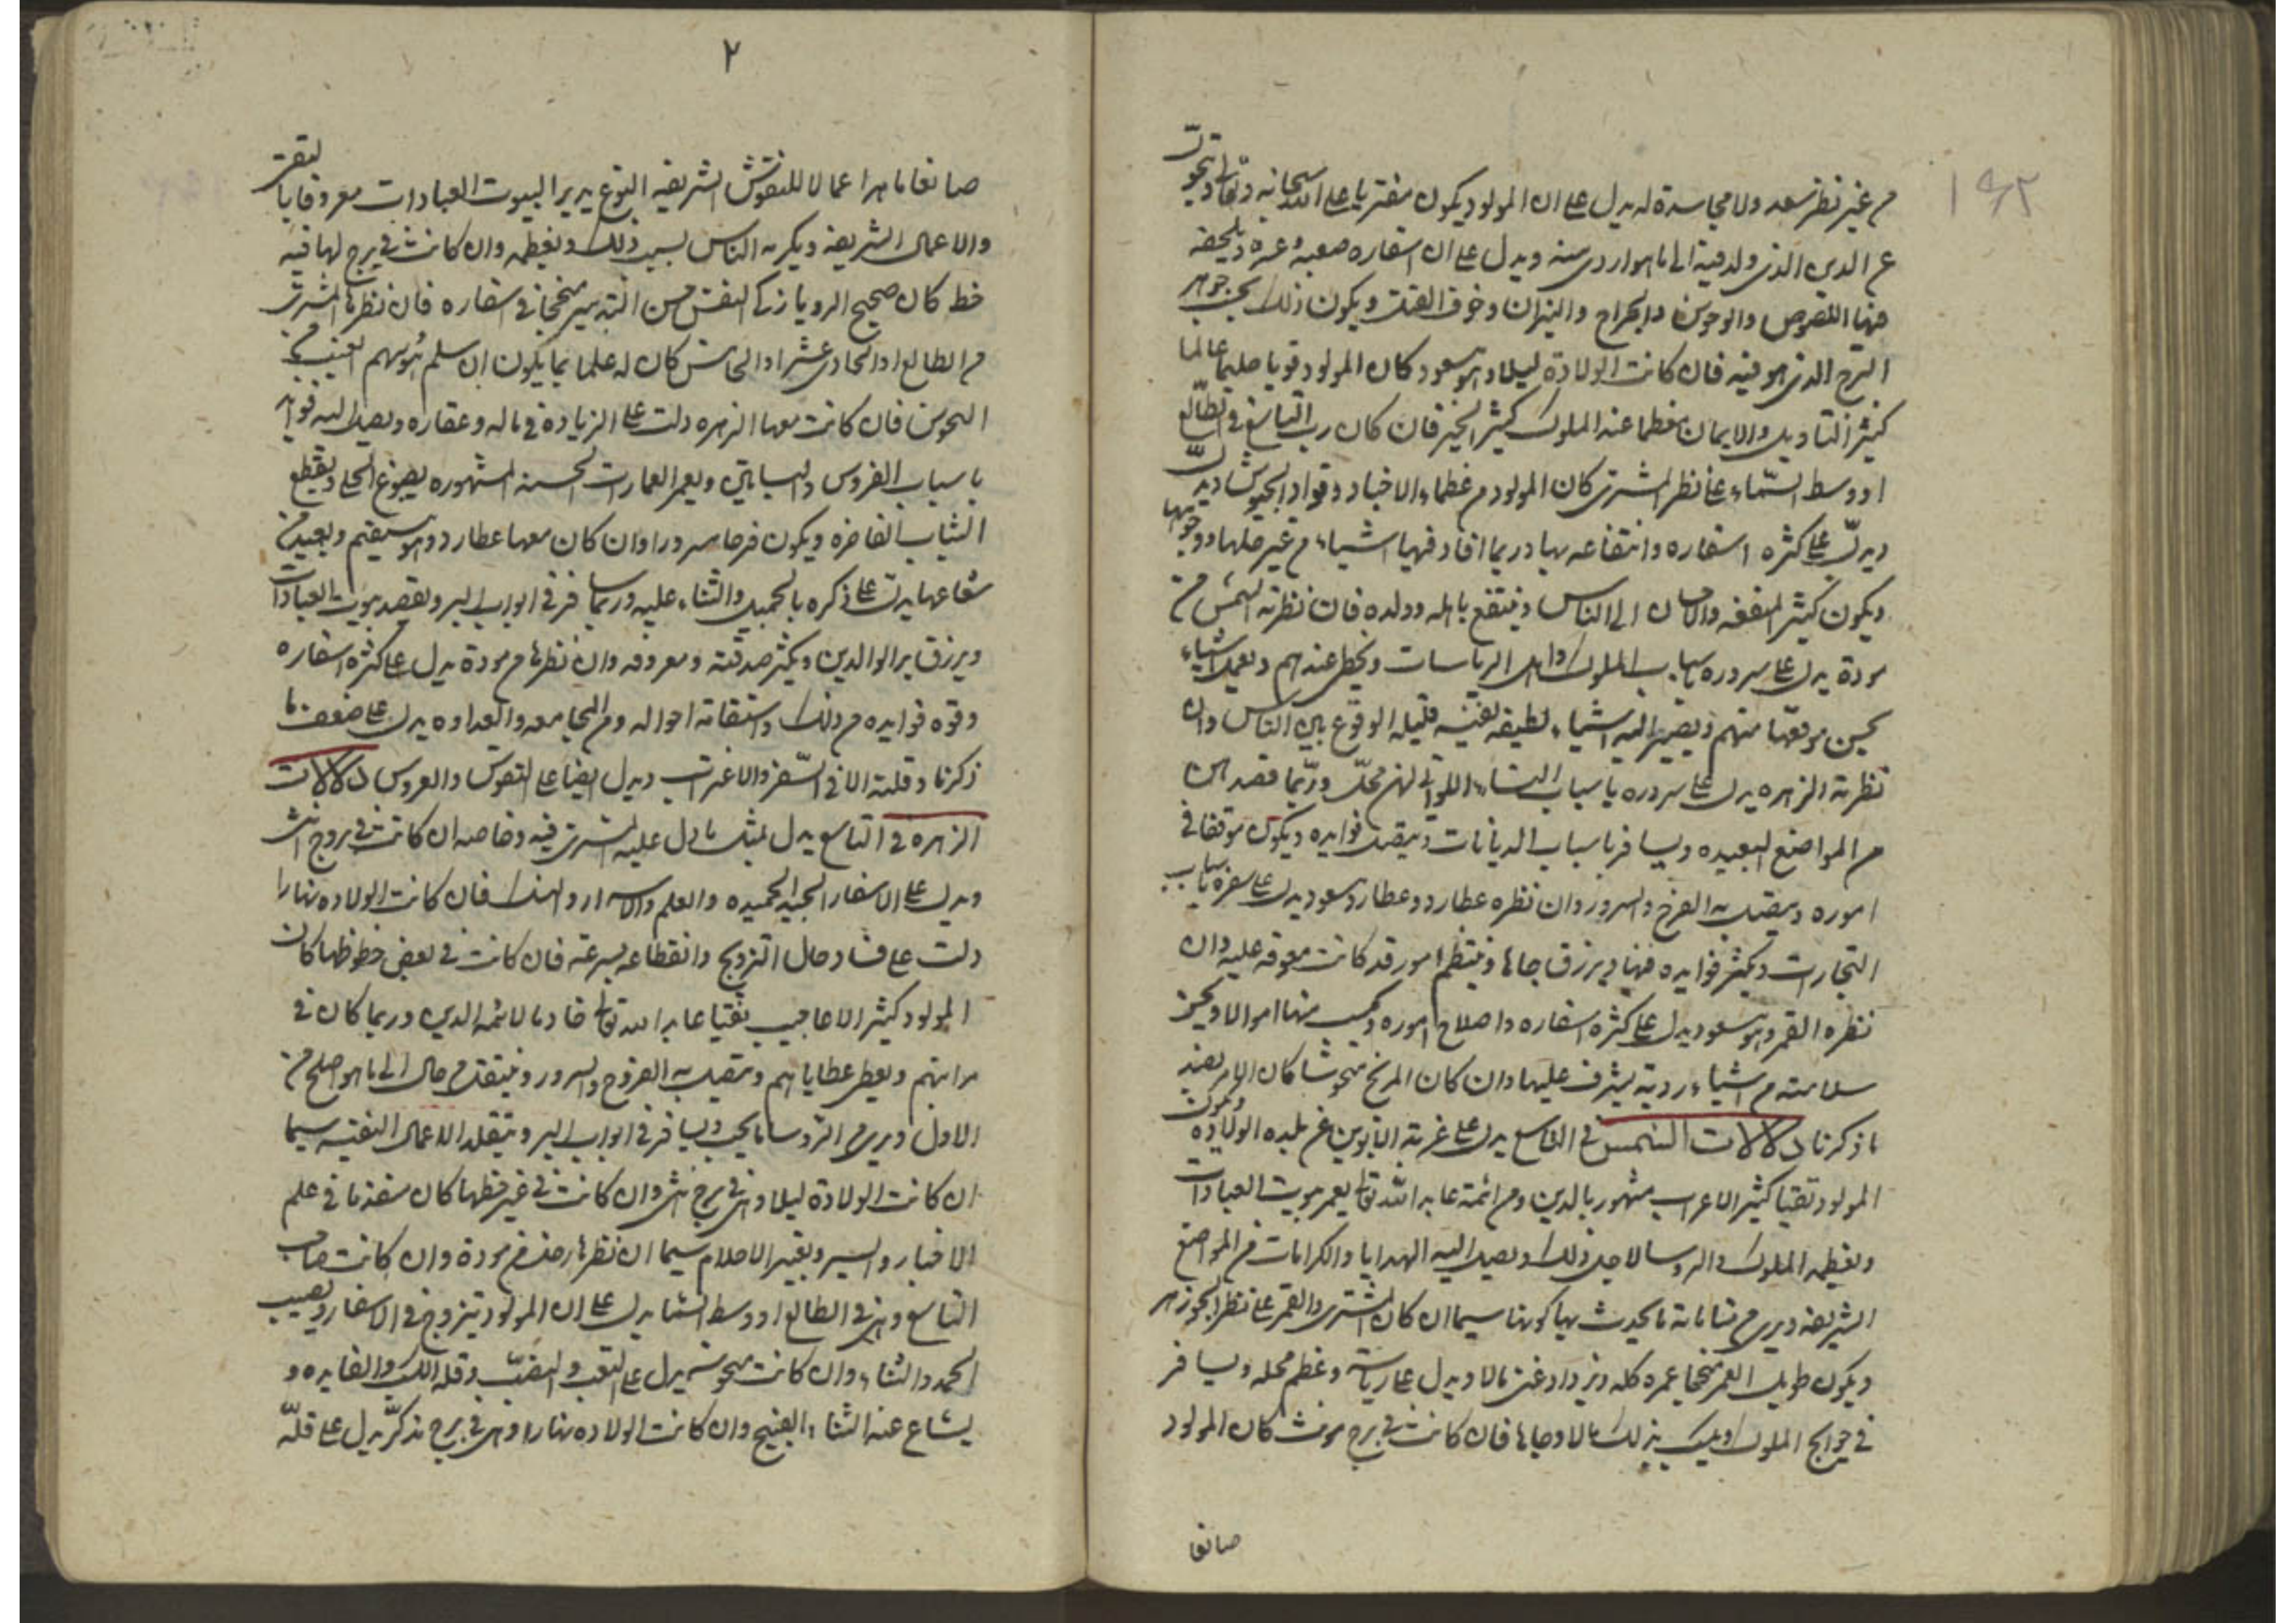 ١٩٢
من غير نظر سعد ولا مجاسدة له يدل على ان المولود يكون مفتريا على الله سبحانه وتعالى ويتحول
عن الدين الذى ولد فيه الى ما هو اردى منه ويدل على ان اسفاره صعبه وعره ويلحقه
فيها اللصوص والوحوش والجراح والنيران وخوف القتل ويكون ذلك بحسب جوهر
البرج الذى هو فيه فان كانت الولادة ليلا وهو مسعود كان المولود قويا حليما عالما
كثير التاويل والايمان معظما عند الملوك كثير الخير فان كان رب التاسع فى الطالع
او وسط السماء على نظر المشترى كان المولود من عظماء الاخيار وقواد الجيوش
ويدل على كثره اسفاره وانتفاعه بها وربما افاد فيها اشياء من غير حلها ووجوهها
ويكون كثير المنفعه والاحسان الى الناس وينتفع باهله وولده فان نظرته الشمس من
مودة يدل على سروره باسباب الملوك واهل الرياسات ويحظى عندهم ويعمل اشياء
يحسن موقعها منهم ويصير اليه اشياء لطيفه نفيسه قليله الوقوع بين الناس وان
نظرته الزهره يدل على سروره باسباب النساء اللواتى لهن محل وربما قصد اليه
من المواضع البعيده ويسافر باسباب الديانات ويتصل فوايده ويكون موفقا فى
اموره ويتصل به الفرح والسرور وان نظره عطارد وعطارد مسعود يدل على سفره باسباب
التجارت ويكثر فوايده فيها ويرزق جاها وينتظم امور قد كانت معوقه عليه وان
نظره القمر وهو مسعود يدل على كثره اسفاره واصلاح اموره وكسب منها اموالا
سلامته من اشياء رديه يشرف عليها وان كان المريخ منحوسا كان الامر بضد
ما ذكرنا دلالات الشمس فى التاسع يدل على غربة الابوين عن بلده الولاده ويكون
المولود تقيا كثير الاعراب مشهور بالدين ومن ائمة عابد الله تعالى يعمر بيوت العبادات
ويعظمه الملوك والروسا لاجل ذلك ويصل اليه الهدايا والكرامات من المواضع
الشريفه ويرى من مناماته ما يحدث بها كونها سيما ان كان المشترى والقمر على نظر الجوزهر
ويكون طويل العمر منجحا عمره كله ويزداد غنى مالا ويدل على رياسته وعظم محله ويسافر
فى حوايج الملوك ويكسب بذلك مالا وجاها فان كانت فى برج مونث كان المولود
صانعا
٢
صانعا ماهرا عمالا للنقوش الشريفه النوع يدير البيوت العبادات معروفا بالتقى
والاعمال الشريفه ويكرمه الناس بسبب ذلك ويعظمه وان كانت فى برج لها فيه
حظ كان صحيح الرويا زكى النفس حسن التدبير منجحا فى اسفاره فان نظرها المشترى
من الطالع او الحادى عشر او الخامس كان له علما بما يكون ان سلم من
النحوس فان كانت معها الزهره دلت على الزيادة فى ماله وعقاره ويصل اليه فوايد
باسباب الغروس والبساتين ويعمر العمارات الحسنه المشهوره يصوغ الحلى ويقطع
الثياب الفاخره ويكون فرحا مسرورا وان كان معها عطارد وهو مستقيم وبعيد من
شعاعها يدل على ذكره بالجميل والثناء عليه وربما سافر فى ابواب البر ويقصد بيوت العبادات
ويرزق بر الوالدين ويكثر صدقته ومعروفه وان نظرها من مودة يدل على كثرة اسفاره
وقوه فوايده من ذلك واستقامة احواله ومن المجامعه والعداوه يدل على ضعف ما
ذكرنا وقلته الا فى السفر والاغتراب ويدل ايضا على القوس والعروس دلالات
الزهره فى التاسع يدل بمثل ما دل عليه المشترى فيه وخاصه ان كانت فى بروج انثى
ويدل على الاسفار الجيد الحميده والعلم والاسرار والهند فان كانت الولاده نهارا
دلت على فساد حال التزويج وانقطاعه بسرعة فان كانت فى بعض حظوظها كان
المولود كثير الاعاجيب تقيا عابد الله تعالى خادما لائمه الدين وربما كان فى
مراتبهم ويعطى عطاياهم ويتصل به الفروح والسرور وينتقل من حال الى ما هو اصلح من
الاول ويرى من الروسا ما يحب ويسافر فى ابواب البر ويتقلد الاعمال النفيسه سيما
ان كانت الولادة ليلا وهى فى برج انثى وان كانت فى غير حظها كان متقدما فى علم
الاخبار والسير وتعبير الاحلام سيما ان نظرها زحل من مودة وان كانت صاحب
التاسع وهى فى الطالع او وسط السما يدل على ان المولود يتزوج فى الاسفار ويصيب
الحمد والثناء وان كانت منحوسة يدل على التعب والنصب وقله الكسب والفايده و
يشاع عنه الثناء القبيح وان كانت الولاده نهارا وهى فى برج مذكر يدل على قله